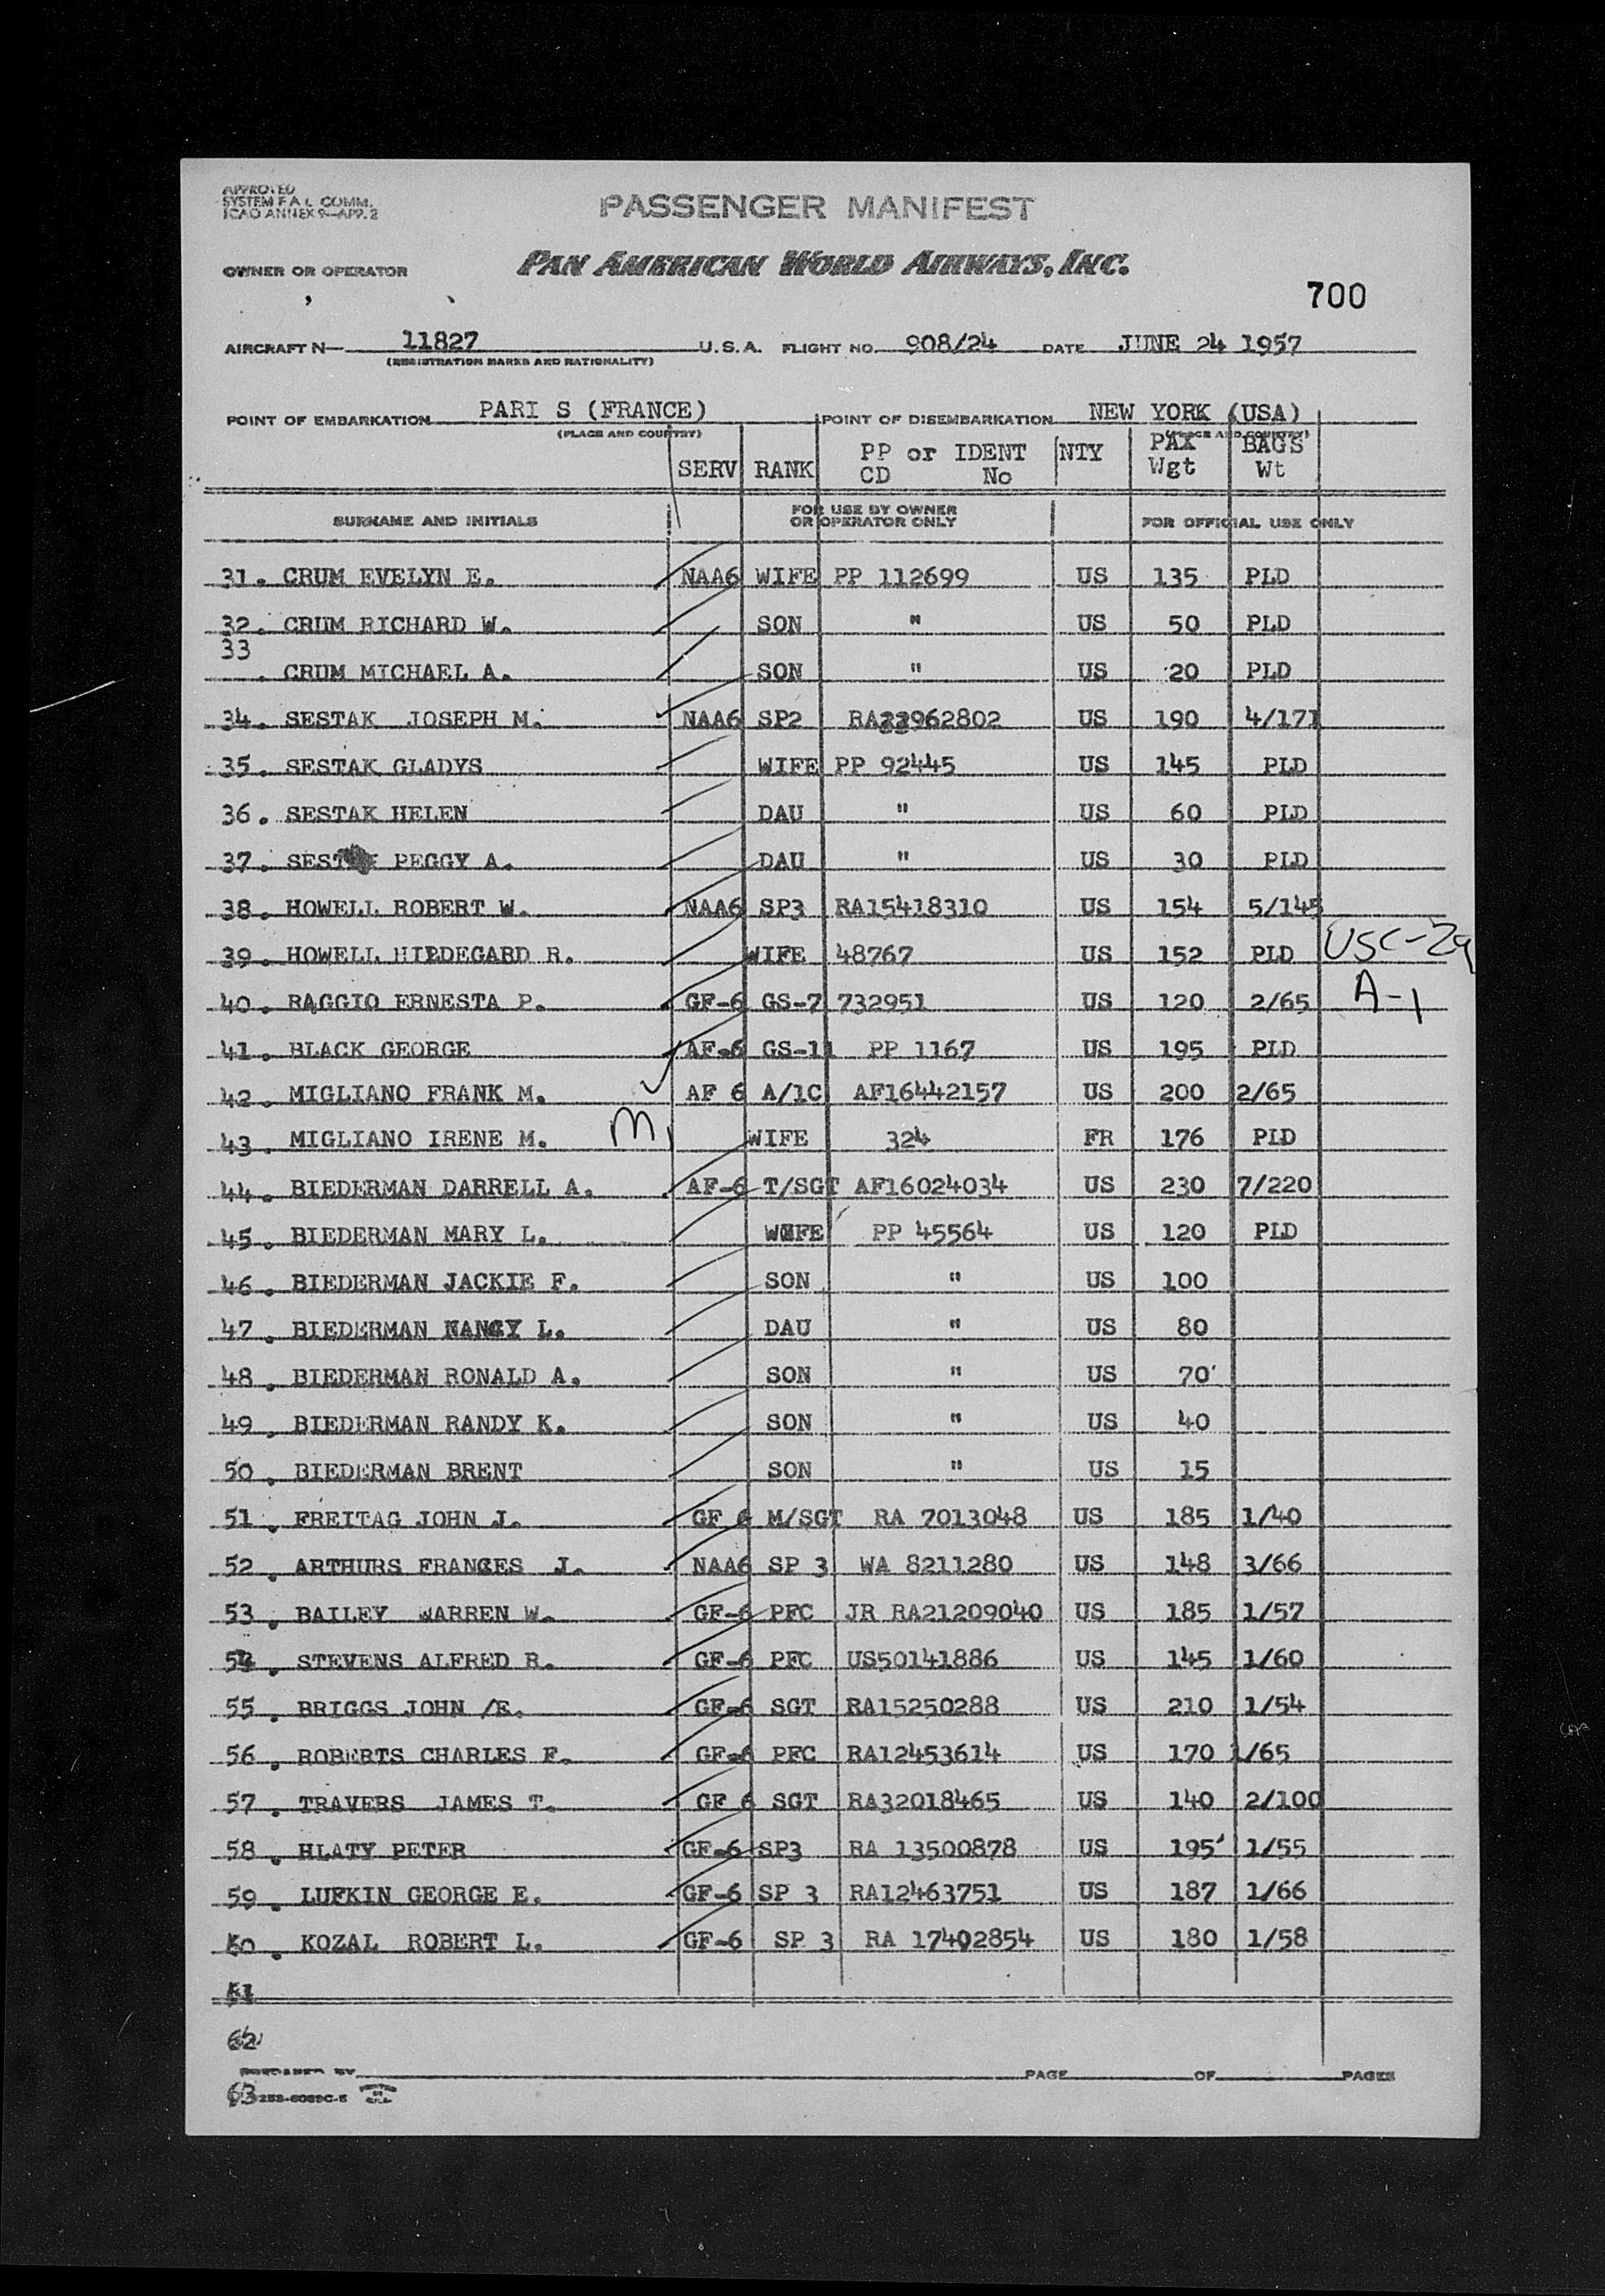 APPROVED
SYSTEM F A L COMM.
ICAO ANNEX 9—APP. 2
PASSENGER MANIFEST
OWNER OR OPERATOR PAN AMERICAN WORLD AIRWAYS, INC.
700
AIRCRAFT N— 11827 U.S.A. FLIGHT NO. 908/24 DATE JUNE 24 1957
(REGISTRATION MARKS AND NATIONALITY)
POINT OF EMBARKATION PARI S (FRANCE) POINT OF DISEMBARKATION NEW YORK (USA)
(PLACE AND COUNTRY) (PLACE AND COUNTRY)
SERV RANK PP or IDENT NTY PAX BAGS
CD No Wgt Wt
SURNAME AND INITIALS FOR USE BY OWNER OR OPERATOR ONLY FOR OFFICIAL USE ONLY
31. CRUM EVELYN E. NAA6 WIFE PP 112699 US 135 PLD
32. CRUM RICHARD W. SON " US 50 PLD
33
. CRUM MICHAEL A. SON " US 20 PLD
34. SESTAK JOSEPH M. NAA6 SP2 RA33962802 US 190 4/171
35. SESTAK GLADYS WIFE PP 92445 US 145 PLD
36. SESTAK HELEN DAU " US 60 PLD
37. PEGGY A. DAU " US 30 PLD
38. HOWELL ROBERT W. NAA6 SP3 RA15418310 US 154 5/145
39. HOWELL HILDEGARD R. WIFE 48767 US 152 PLD USC-2a
40. RAGGIO ERNESTA P. GF-6 GS-7 732951 US 120 2/65 A-1
41. BLACK GEORGE AF-6 GS-11 PP 1167 US 195 PLD
42. MIGLIANO FRANK M. AF 6 A/1C AF16442157 US 200 2/65
43. MIGLIANO IRENE M. M, WIFE 324 FR 176 PLD
44. BIEDERMAN DARRELL A. AF-6 T/SGT AF16024034 US 230 7/220
45. BIEDERMAN MARY L. WIFE PP 45564 US 120 PLD
46. BIEDERMAN JACKIE F. SON " US 100
47. BIEDERMAN NANCY L. DAU " US 80
48. BIEDERMAN RONALD A. SON " US 70
49. BIEDERMAN RANDY K. SON " US 40
50. BIEDERMAN BRENT SON " US 15
51. FREITAG JOHN J. GF 6 M/SGT RA 7013048 US 185 1/40
52. ARTHURS FRANCES J. NAA6 SP 3 WA 8211280 US 148 3/66
53. BAILEY WARREN W. GF-6 PFC JR RA21209040 US 185 1/57
54. STEVENS ALFRED R. GF-6 PFC US50141886 US 145 1/60
55. BRIGGS JOHN /E. GF-6 SGT RA15250288 US 210 1/54
56. ROBERTS CHARLES F. GF-6 PFC RA12453614 US 170 1/65
57. TRAVERS JAMES T. GF 6 SGT RA32018465 US 140 2/100
58. HLATY PETER GF-6 SP3 RA 13500878 US 195 1/55
59. LUFKIN GEORGE E. GF-6 SP 3 RA12463751 US 187 1/66
60. KOZAL ROBERT L. GF-6 SP 3 RA 17402854 US 180 1/58
61
62
PREPARED BY PAGE OF PAGES
63